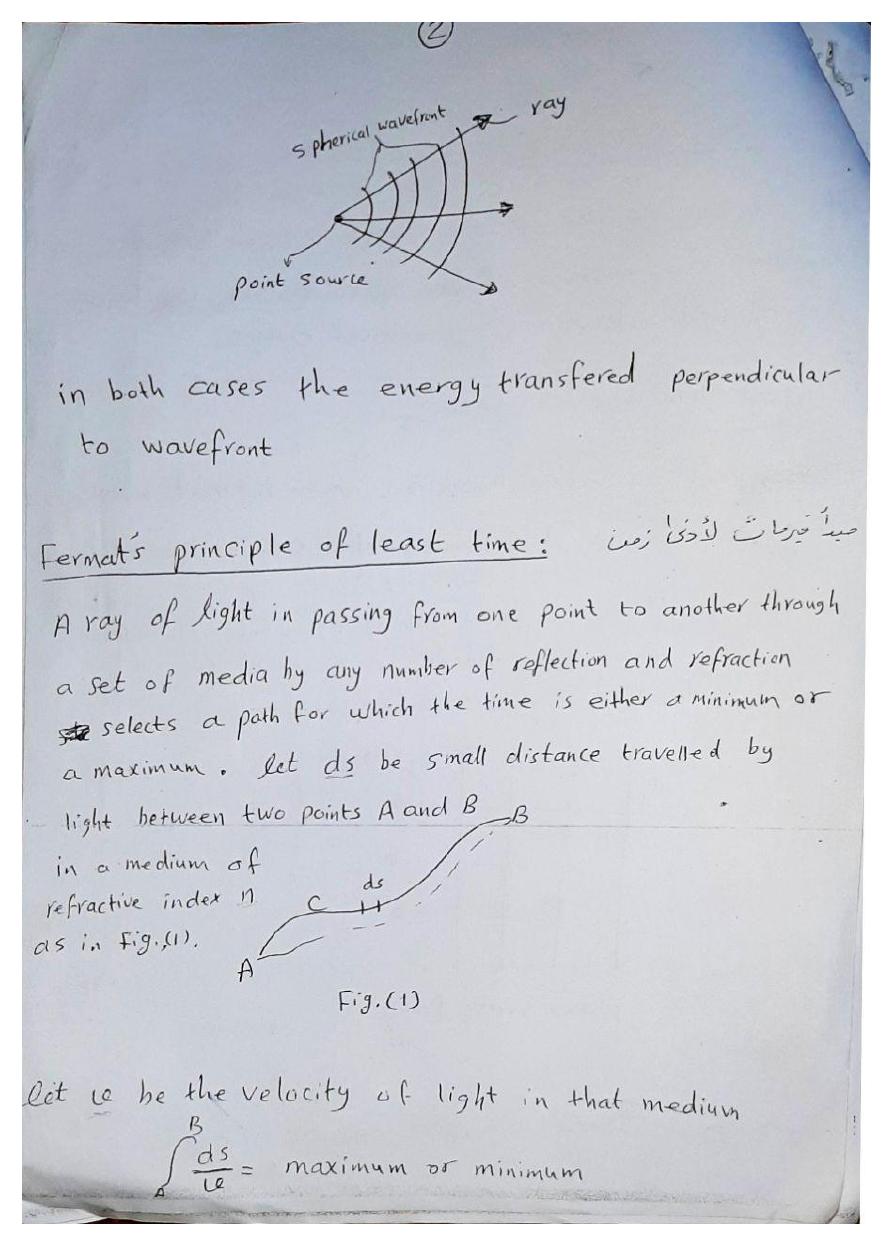 2
spherical wavefront
ray
point source
in both cases the energy transfered perpendicular
to wavefront
Fermat's principle of least time: مبدأ فيرمات لأدنى زمن
A ray of light in passing from one point to another through
a set of media by any number of reflection and refraction
selects a path for which the time is either a minimum or
a maximum. let ds be small distance travelled by
light between two points A and B
B
in a medium of
ds
refractive index n
C
as in Fig.(1).
A
Fig.(1)
let v be the velocity of light in that medium
B
∫ ds/v = maximum or minimum
A